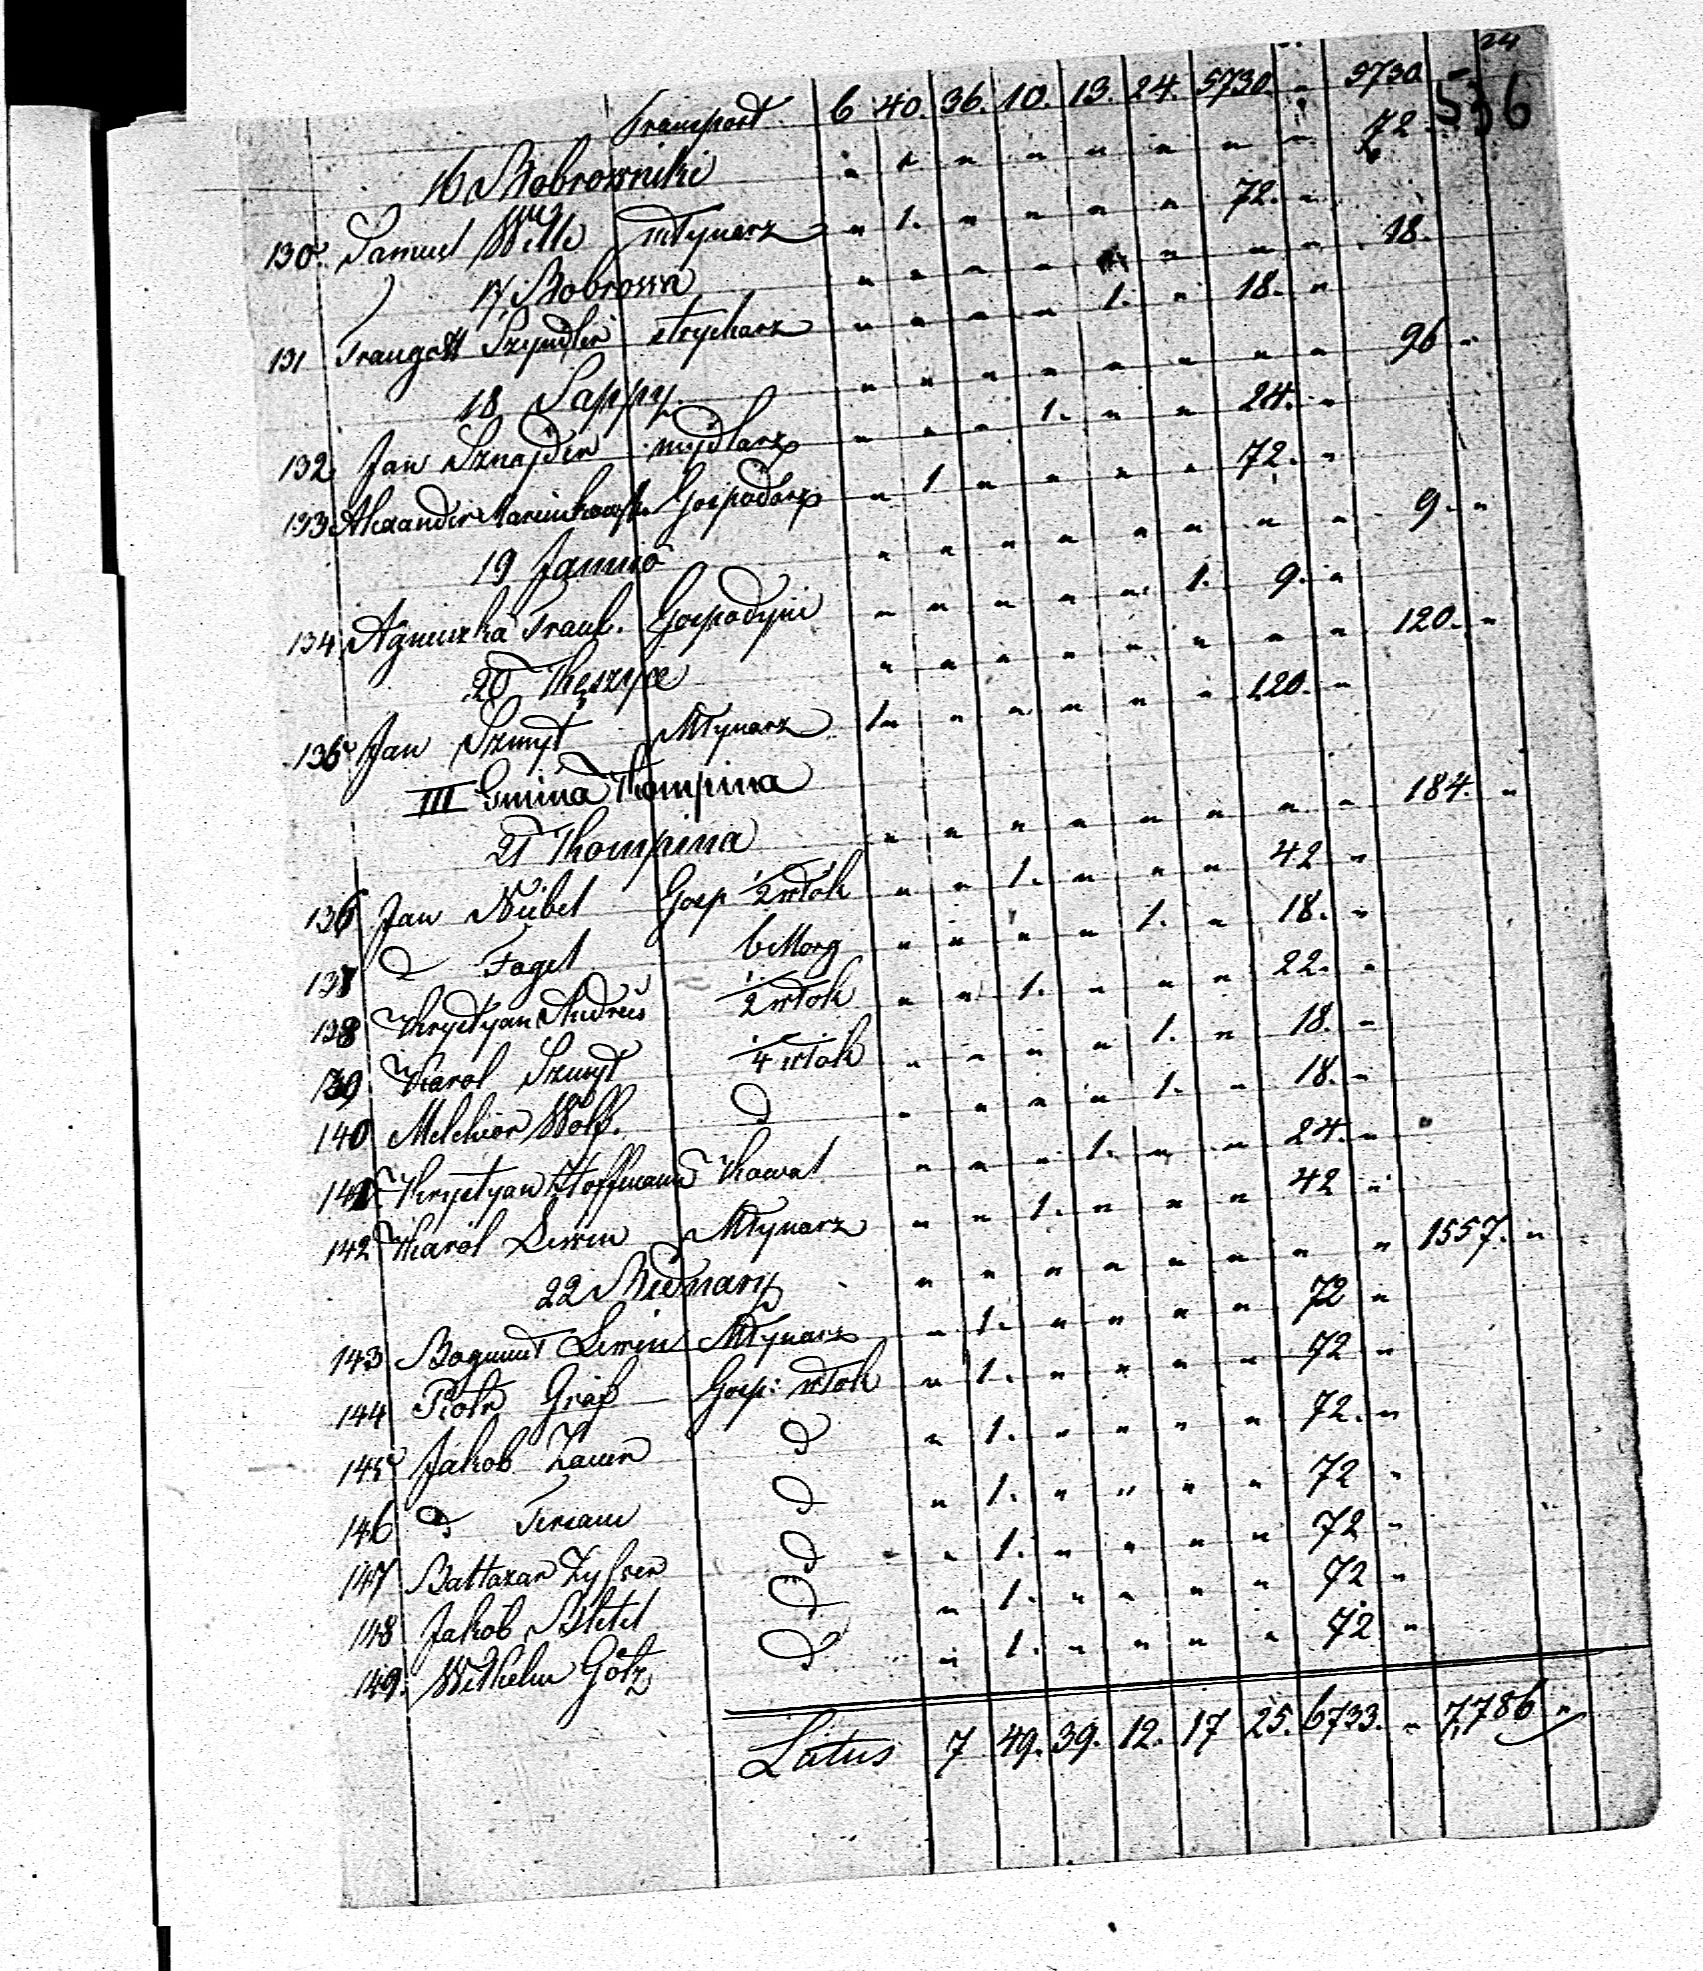 24
536
Transport 6 40. 36. 10. 13. 24. 5730. " 5730 "
16 Bobrowniki " " " " " " " " 72 "
130. Samuel Wille młynarz " 1. " " " " 72. "
17 Bobrowa " " " " " " " 18.
131 Traugott Szyndler strycharz " " " " 1. " 18. "
18 Łappy " " " " " " " " 96 "
132 Jan Sznajder mydlarz " " " 1. " " 24. "
133 Alexander Marcinkowsk. Gospodarz " 1 " " " " 72. "
19 Jamno " " " " " " " " 9. "
134 Agnieszka Traut. Gospodyni " " " " " 1. 9. "
20 Kęszyce " " " " " " " " 120. "
135 Jan Szmyt Młynarz 1 " " " " " 120. "
III Gmina Kompina
21 Kompina " " " " " " " " 184. "
136 Jan Nibel Gosp ½ włok " " 1. " " " 42 "
137 d Fogel 6 Morg " " " " 1. " 18. "
138 Krystyan Andreis ½ włok " " 1. " " " 22. "
139 Karol Szmyt ¼ włok " " " " 1. " 18. "
140 Melchior Wolf. d " " " " 1. " 18. "
141 Krystyan Hoffmann Kowal " " " 1. " " 24. "
142 Karol Lewin Młynarz " " 1. " " " 42 "
22 Bednary " " " " " " " " 1557. "
143 Bogumił Lewin Młynarz " 1. " " " " 72 "
144 Piotr Gráf Gosp: włok " 1. " " " " 72 "
145 Jakob Zauer d " 1. " " " " 72. "
146 d d " 1. " " " " 72 "
147 Baltazar d " 1. " " " " 72 "
148 Jakob d " 1. " " " " 72 "
149. Wilhelm Götz d " 1. " " " " 72 "
Latus 7 49. 39. 12. 17 25. 6733. " 7,786 "